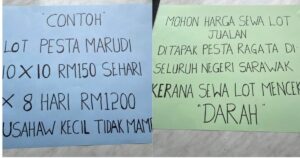 "CONTOH"
LOT PESTA MARUDI
10 X 10 RM150 SEHARI
X 8 HARI RM1200
USAHAW KECIL TIDAK MAMP
MOHON HARGA SEWA LOT
JUALAN
DITAPAK PESTA RAGATA DI
SELURUH NEGERI SARAWAK
KERANA SEWA LOT MENCEK
"DARAH"